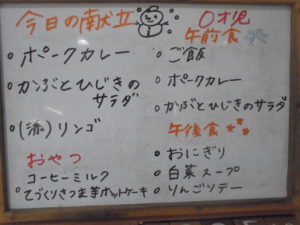 今日の献立
・ポークカレー
・かぶとひじきの
サラダ
・(添)リンゴ
おやつ
コーヒーミルク
・てづくりさつま芋ホットケーキ
0才児
午前食
・ご飯
・ポークカレー
・かぶとひじきのサラダ
午後食
・おにぎり
・白菜スープ
・りんごソテー